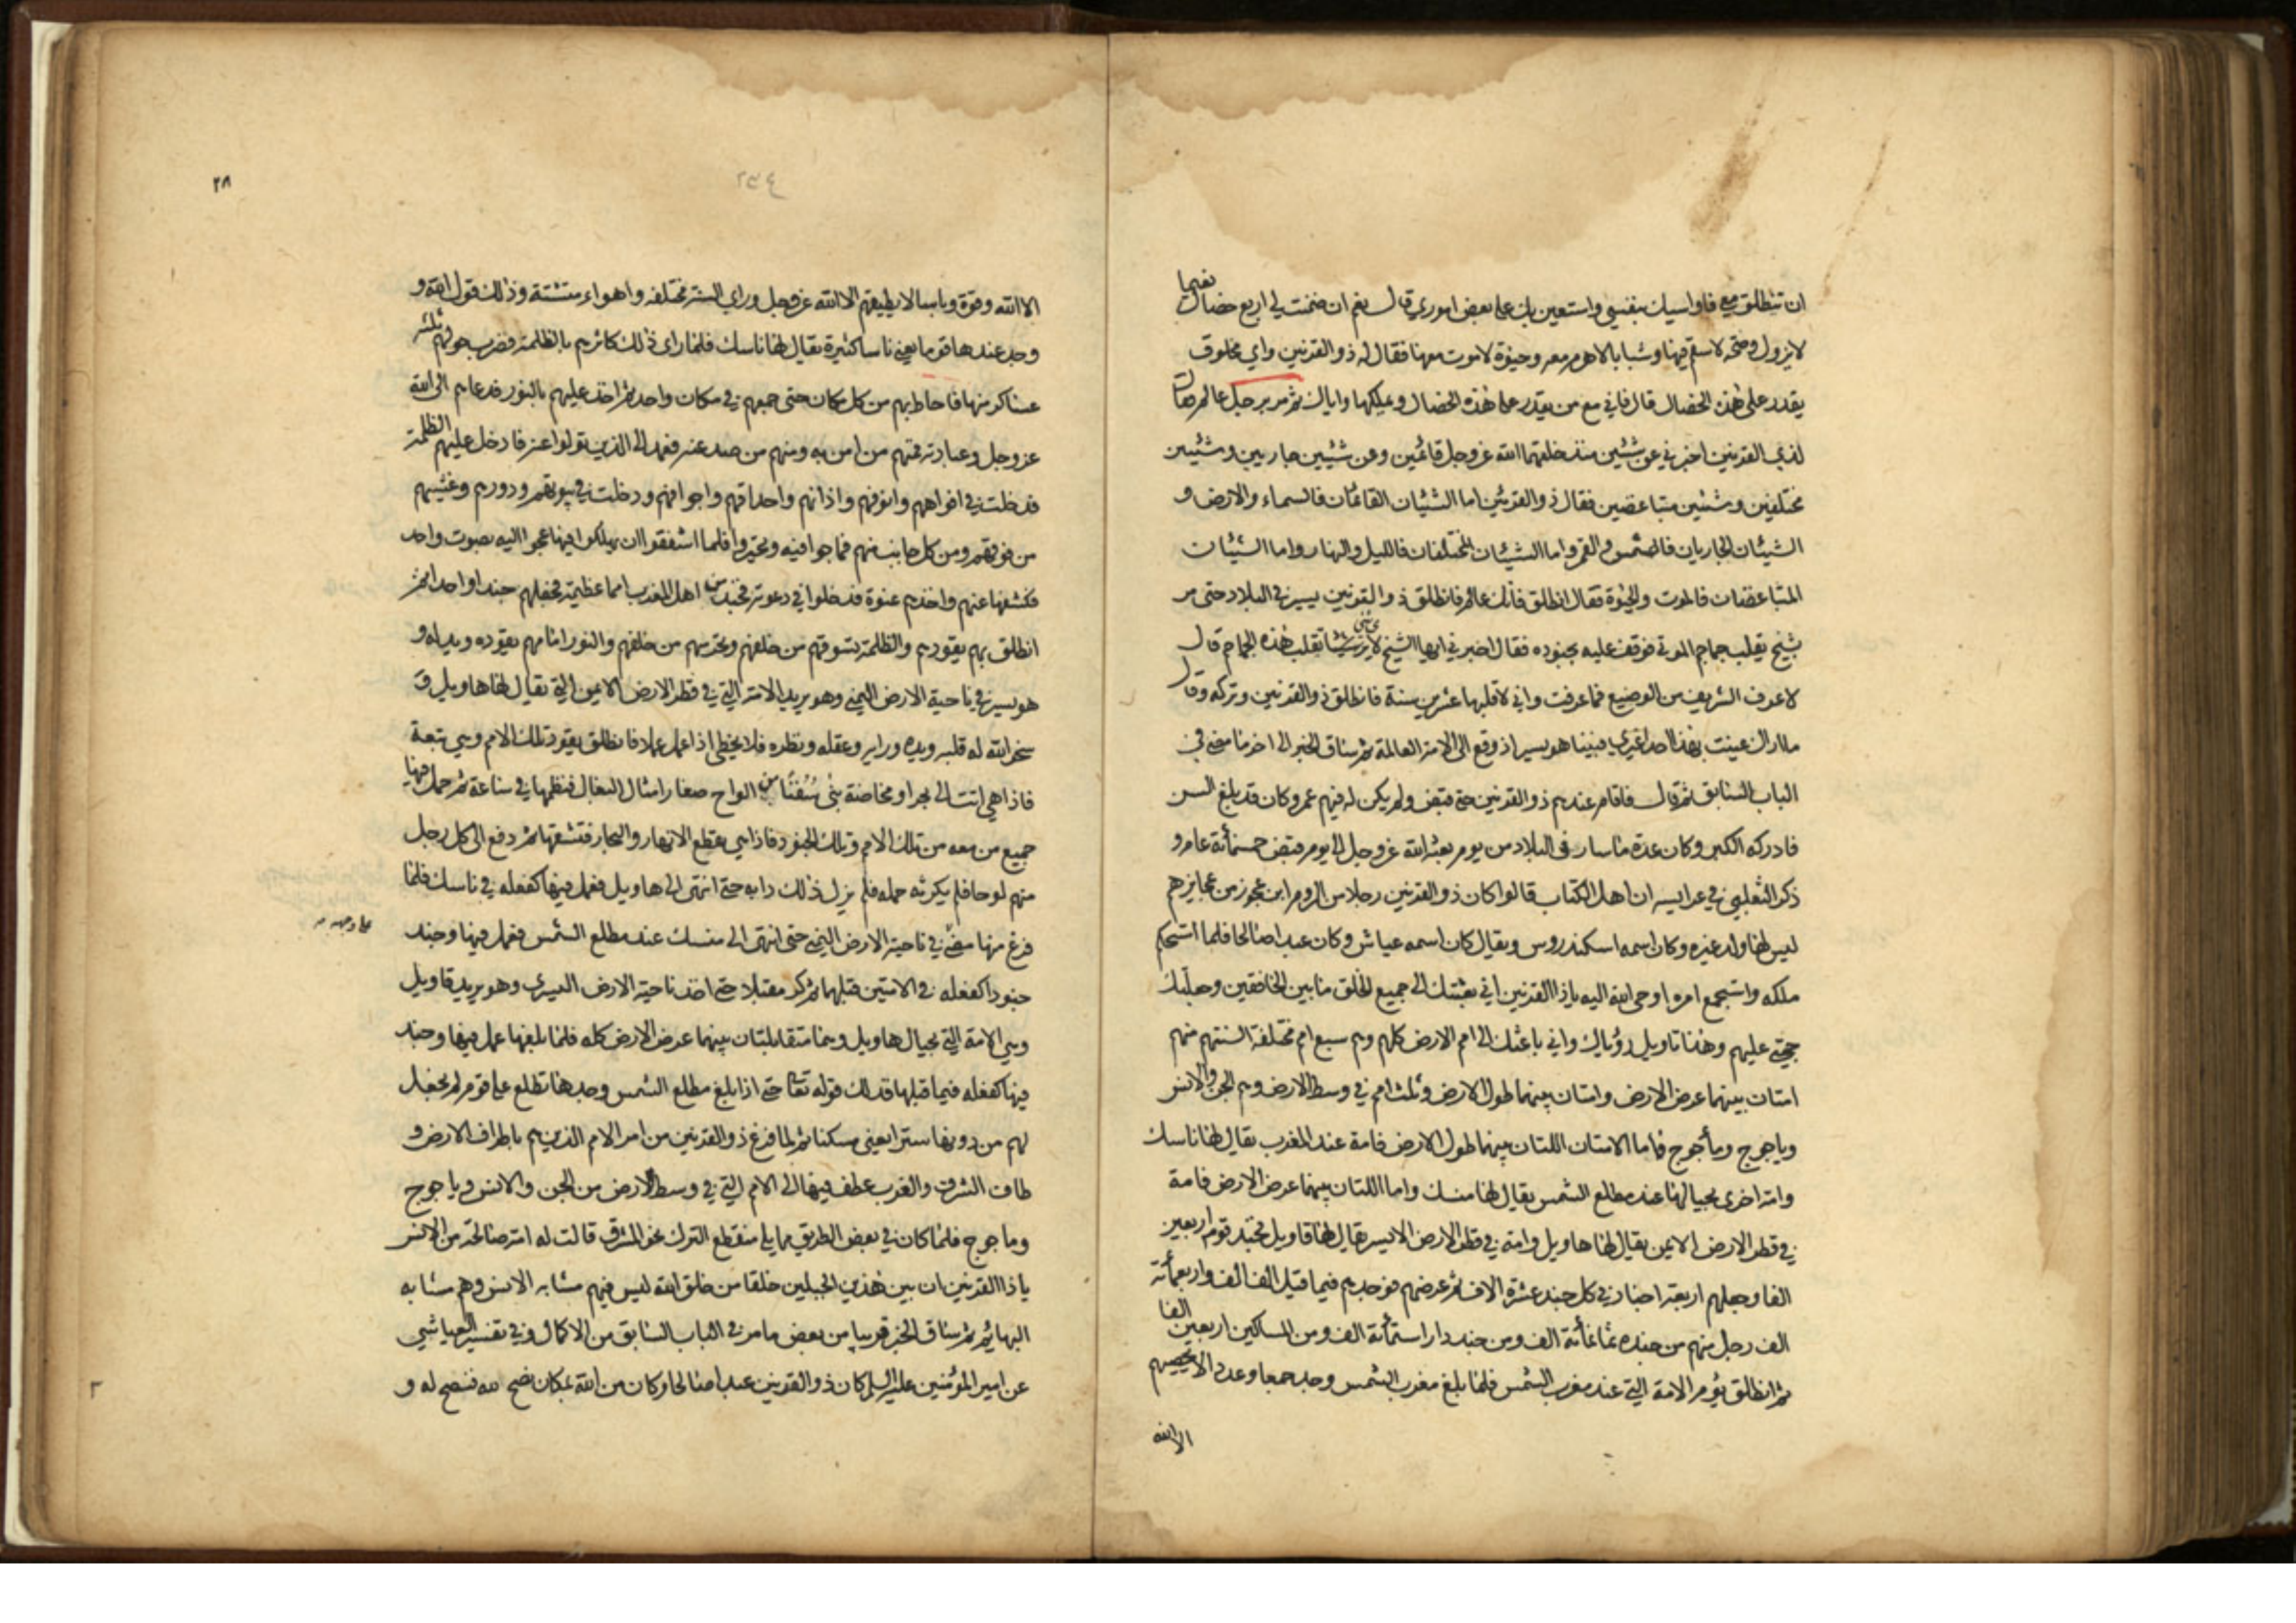 ان تنطلق معي فاواسيك بنفسي واستعين بك على بعض اموري قال نعم ان ضمنت لي اربع خصال نعيما
لا يزول وصحة لا سقم فيها وشبابا لا هرم معه وحيوة لا موت معها فقال له ذو القرنين واي مخلوق
يقدر على هذه الخصال قال فاني مع من يقدر على هذه الخصال ويملكها واياك ثم مر برجل عالم فقال
لذي القرنين اخبرني عن شيئين منذ خلقهما الله عز وجل قائمين وعن شيئين جاريين وشيئين
مختلفين وشيئين متباغضين فقال ذو القرنين اما الشيئان القائمان فالسماء والارض و
الشيئان الجاريان فالشمس والقمر واما الشيئان المختلفان فالليل والنهار واما الشيئان
المتباغضان فالموت والحيوة فقال انطلق فانك عالم فانطلق ذو القرنين يسير في البلاد حتى مر
بشيخ يقلب جماجم الموتى فوقف عليه بجنوده فقال اخبرني ايها الشيخ لاي شيئ تقلب هذه الجماجم قال
لاعرف الشريف من الوضيع فما عرفت واني لاقلبها عشرين سنة فانطلق ذو القرنين وتركه وقال
ما اراك عنيت بهذا احدا غيري فبينا هو يسير اذ وقع الى الامة العالمة ثم ساق الخبر الى اخر ما مضى في
الباب السابق ثم قال فاقام عندهم ذو القرنين حتى قبض ولم يكن له فيهم عمر وكان قد بلغ السن
فادركه الكبر وكان عدة ما سار في البلاد من يوم بعثه الله عز وجل الى يوم قبض خمسمأة عام و
ذكر الثعلبي في عرايسه ان اهل الكتاب قالوا كان ذو القرنين رجلا من الروم ابن عجوز من عجايزهم
ليس لها ولد غيره وكان اسمه اسكندروس ويقال كان اسمه عياش وكان عبدا صالحا فلما استحكم
ملكه واستجمع امره اوحى الله اليه يا ذا القرنين اني بعثتك الى جميع الخلق ما بين الخافقين وجعلتك
حجتي عليهم وهذا تاويل رؤياك واني باعثك الى امم الارض كلهم وهم سبع امم مختلفة السنتهم منهم
امتان بينهما عرض الارض وامتان بينهما طول الارض وثلث امم في وسط الارض وهم الجن والانس
وياجوج ومأجوج فاما الامتان اللتان بينهما طول الارض فامة عند المغرب يقال لها ناسك
وامة اخرى بحيالها عند مطلع الشمس يقال لها منسك واما اللتان بينهما عرض الارض فامة
في قطر الارض الايمن يقال لها هاويل وامة في قطر الارض الايسر يقال لها قاويل
الفا وجعلهم اربعة اجناد في كل جند عشرة الاف ثم عرضهم فوجدهم فيما قيل الف الف واربعمأة
الف رجل منهم من جنده ثمانمأة الف ومن جند دارا ستمأة الف ومن المساكين اربعين الفا
ثم انطلق يؤم الامة التي عند مغرب الشمس فلما بلغ مغرب الشمس وجد جمعا وعددا لا يحصيهم
الا الله
٢٨
الا الله وقوة وباسا لا يطيقهم الا الله عز وجل وراى السنة مختلفة واهواء متشتتة وذلك قول الله و
وجد عندها قوما يعني ناسا كثيرة يقال لها ناسك فلما راى ذلك كاثرهم بالظلمة فضرب حولهم ثلثة
عساكر منها فاحاط بهم من كل مكان حتى جمعهم في مكان واحد ثم اخذ عليهم بالنور فدعاهم الى الله
عز وجل وعبادته فمنهم من امن به ومنهم من صد عنه فعمد الى الذين تولوا عنه فادخل عليهم الظلمة
فدخلت في افواههم وانوفهم واذانهم واحداقهم واجوافهم ودخلت في بيوتهم ودورهم وغشيتهم
من فوقهم ومن كل جانب منهم فماجوا فيه وتحيروا فلما اشفقوا ان يهلكوا فيها عجوا اليه بصوت واحد
فكشفها عنهم واخذهم عنوة فدخلوا في دعوته فجند من اهل المغرب امما عظيمة فجعلهم جندا واحدا ثم
انطلق بهم يقودهم والظلمة تسوقهم من خلفهم وتحرسهم من خلفهم والنور امامهم يقوده ويدله و
هو يسير في ناحية الارض اليمنى وهو يريد الامة التي في قطر الارض الايمن التي يقال لها هاويل و
سخر الله له قلبه ويده ورايه وعقله ونظره فلا يخطي اذا عمل عملا فانطلق يقود تلك الامم وهي تتبعه
فاذا هي اتت الى بحر او مخاضة بنى سفنا من الواح صغار امثال النعال فنظمها في ساعة ثم حمل فيها
جميع من معه من تلك الامم وتلك الجنود فاذا هي قطع الانهار والبحار فتشقها ثم دفع الى كل رجل
منهم لوحا فلم يكرثه حمله فلم يزل ذلك دابه حتى انتهى الى هاويل فعمل فيها كفعله في ناسك فلما
فرغ منها مضى في ناحية الارض اليمنى حتى انتهى الى منسك عند مطلع الشمس فعمل فيها وجند
جنودا كفعله في الامتين قبلها ثم كر مقبلا حتى اخذ ناحية الارض اليسرى وهو يريد قاويل
وهي الامة التي بحيال هاويل وهما متقابلتان بينهما عرض الارض كله فلما بلغها عمل فيها وجند
فيها كفعله فيما قبلها فذلك قوله تعا حتى اذا بلغ مطلع الشمس وجدها تطلع على قوم لم نجعل
لهم من دونها سترا يعني مسكنا ثم لما فرغ ذو القرنين من امر الامم الذين هم باطراف الارض و
طاف الشرق والغرب عطف فيها الى الامم التي في وسط الارض من الجن والانس وياجوج
وماجوج فلما كان في بعض الطريق مما يلي منقطع الترك نحو المشرق قالت له امة صالحة من الانس
يا ذا القرنين ان بين هذين الجبلين خلقا من خلق الله ليس فيهم مشابه الانس وهم مشابه
البهائم ثم ساق الخبر قريبا من بعض ما مر في الباب السابق من الاكمال وفي تفسير العياشي
عن امير المؤمنين عليه السلم كان ذو القرنين عبدا صالحا وكان من الله بمكان نصح لله فنصح له و